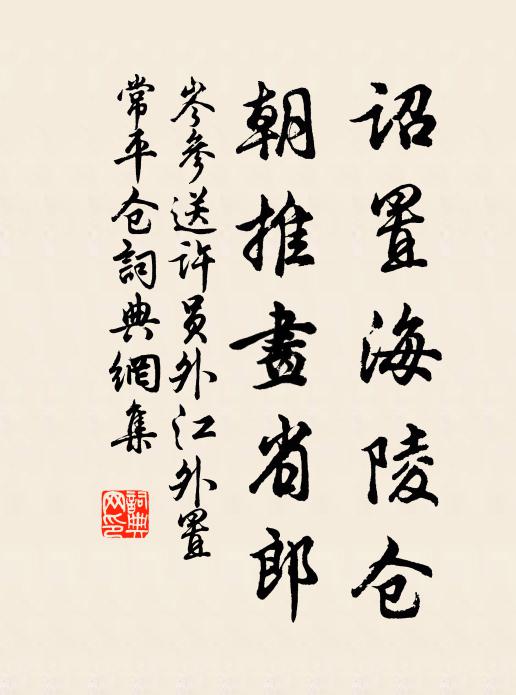 诏置海陵仓
朝推畫省郎
岑參送许员外江外置
常平仓詞典網集
詞典
网印